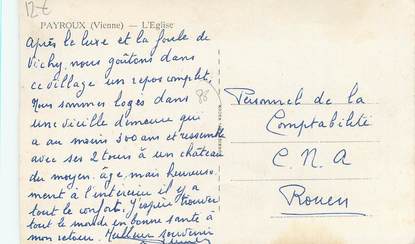 12€
PAYROUX (Vienne) — L'Eglise
Après le luxe et la foule de
Vichy, nous goûtons dans
ce village un repos complet.
Nous sommes logés dans
une vieille demeure qui
a au moins 300 ans et ressemble
avec ses 2 tours à un château
du moyen âge, mais heureuse-
ment à l'intérieur il y a
tout le confort. J'espère trouver
tout le monde en bonne santé à
mon retour. Meilleur souvenir
86
Personnel de la
Comptabilité
C.N.A
Rouen